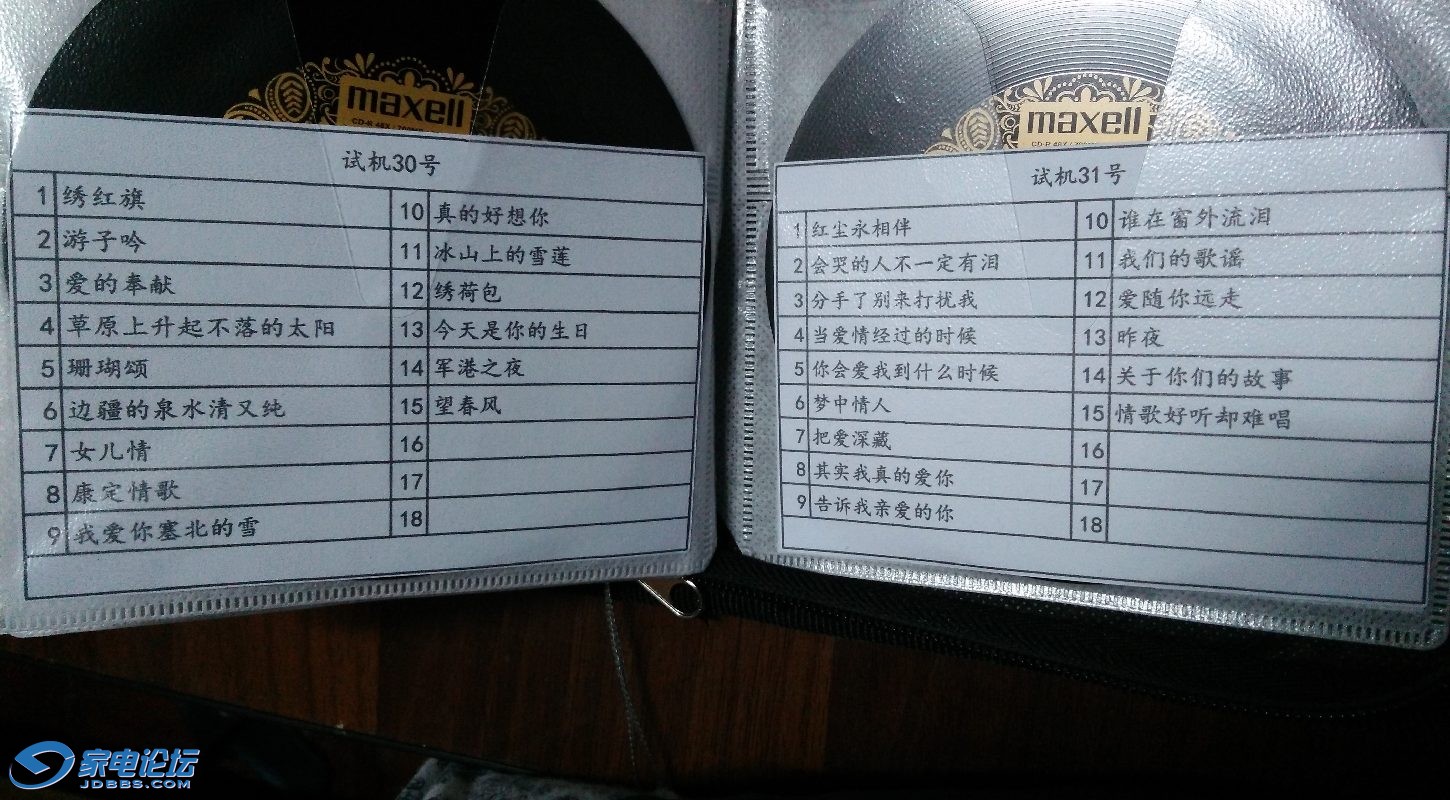 maxell
试机30号
1 绣红旗
2 游子吟
3 爱的奉献
4 草原上升起不落的太阳
5 珊瑚颂
6 边疆的泉水清又纯
7 女儿情
8 康定情歌
9 我爱你塞北的雪
10 真的好想你
11 冰山上的雪莲
12 绣荷包
13 今天是你的生日
14 军港之夜
15 望春风
16
17
18
maxell
试机31号
1 红尘永相伴
2 会哭的人不一定有泪
3 分手了别来打扰我
4 当爱情经过的时候
5 你会爱我到什么时候
6 梦中情人
7 把爱深藏
8 其实我真的爱你
9 告诉我亲爱的你
10 谁在窗外流泪
11 我们的歌谣
12 爱随你远走
13 昨夜
14 关于你们的故事
15 情歌好听却难唱
16
17
18
家电论坛
JDBBS.COM